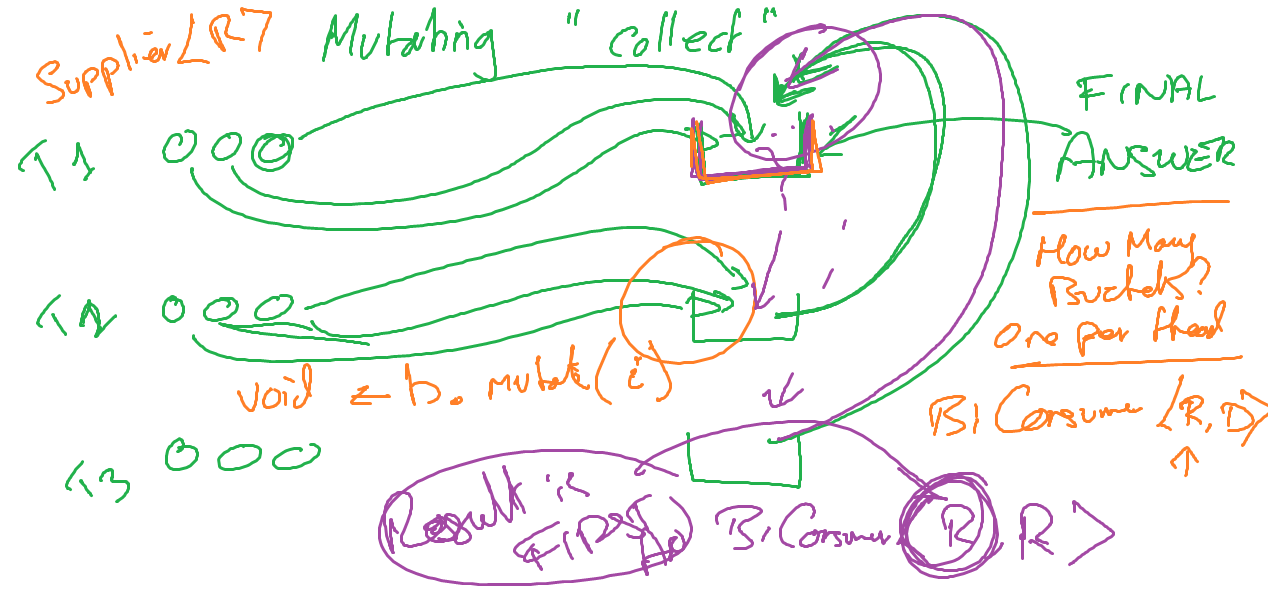 Supplier<R>
Mutating "collect"
FINAL
ANSWER
T1
How Many
Buckets?
One per thread
T2
void ← b. mutate(i)
BiConsumer <R, D>
T3
Result is
FIRST
BiConsumer R R >